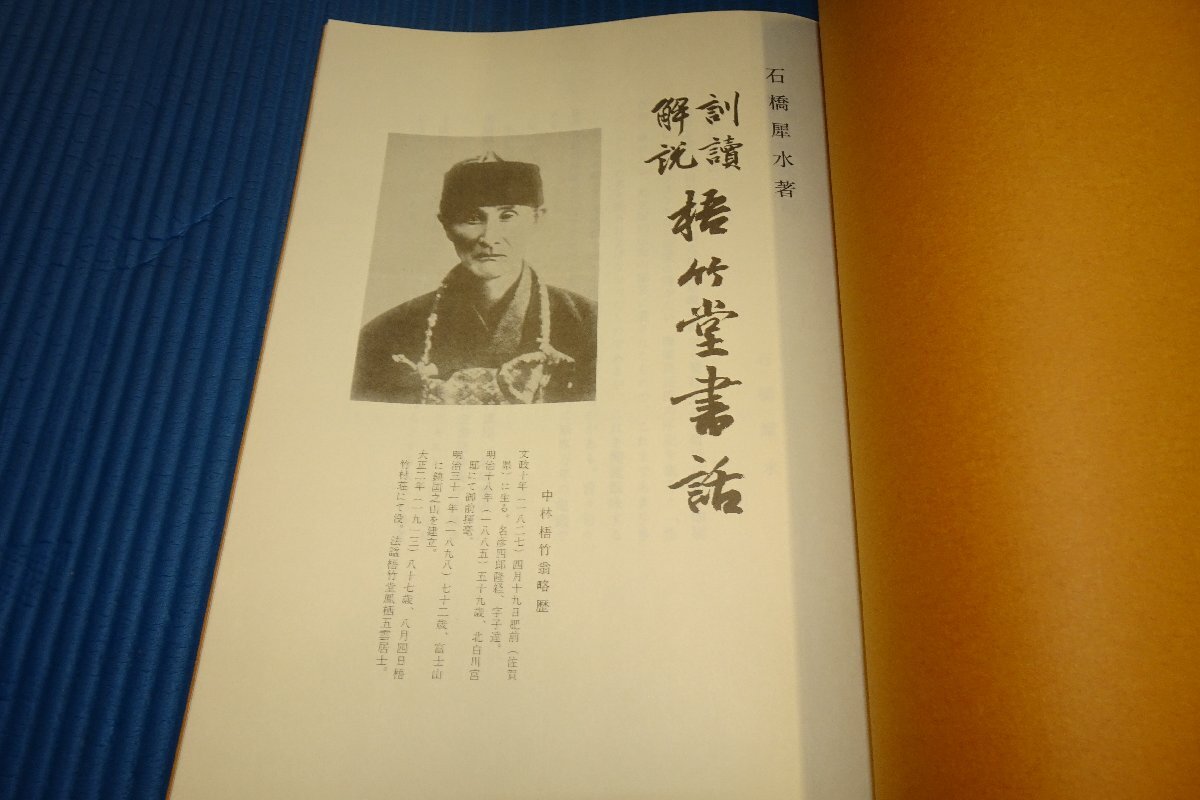 石橋犀水著
訓讀
解説
梧竹堂書話
中林梧竹翁略歴
文政十年(一八二七)四月十九日肥前(佐賀
県)に生る。名彦四郎隆経、字子達。
明治十八年(一八八五)五十九歳、北白川宮
邸にて御前揮毫。
明治三十一年(一八九八)七十二歳、富士山
に鎮国之山を建立。
大正二年(一九一三)八十七歳、八月四日梧
竹村荘にて没。法諡梧竹堂鳳栖五雲居士。